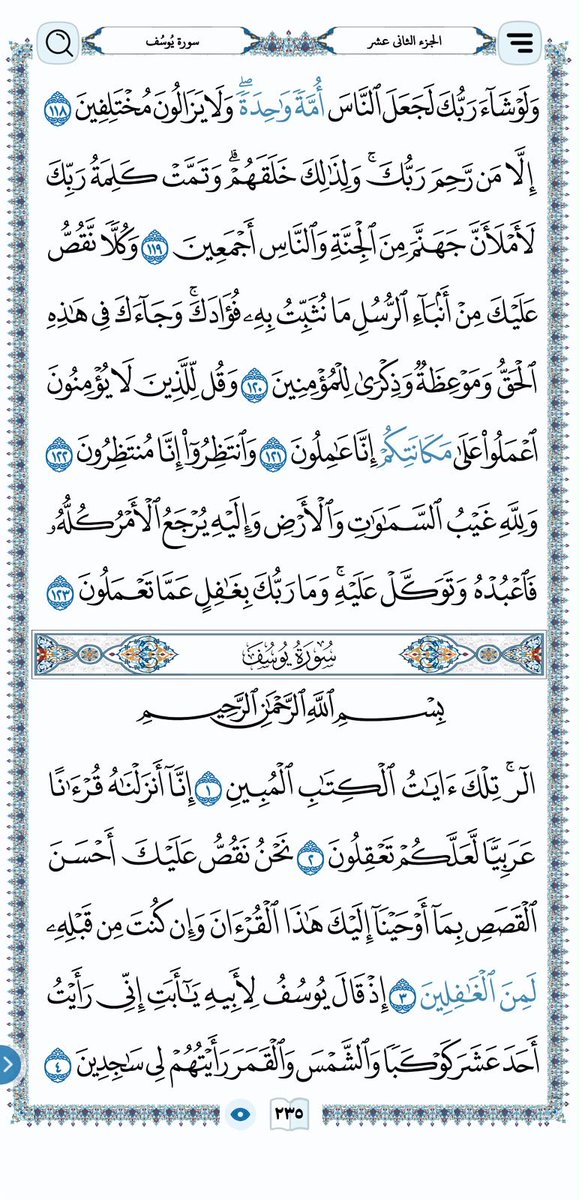 الجزء الثاني عشر
سورة يُوسُف
وَلَوْ شَآءَ رَبُّكَ لَجَعَلَ ٱلنَّاسَ أُمَّةً وَٰحِدَةً ۖ وَلَا يَزَالُونَ مُخْتَلِفِينَ ١١٨
إِلَّا مَن رَّحِمَ رَبُّكَ ۚ وَلِذَٰلِكَ خَلَقَهُمْ ۗ وَتَمَّتْ كَلِمَةُ رَبِّكَ
لَأَمْلَأَنَّ جَهَنَّمَ مِنَ ٱلْجِنَّةِ وَٱلنَّاسِ أَجْمَعِينَ ١١٩ وَكُلًّا نَّقُصُّ
عَلَيْكَ مِنْ أَنۢبَآءِ ٱلرُّسُلِ مَا نُثَبِّتُ بِهِۦ فُؤَادَكَ ۚ وَجَآءَكَ فِى هَٰذِهِ
ٱلْحَقُّ وَمَوْعِظَةٌ وَذِكْرَىٰ لِلْمُؤْمِنِينَ ١٢٠ وَقُل لِّلَّذِينَ لَا يُؤْمِنُونَ
ٱعْمَلُوا۟ عَلَىٰ مَكَانَتِكُمْ إِنَّا عَٰمِلُونَ ١٢١ وَٱنتَظِرُوٓا۟ إِنَّا مُنتَظِرُونَ ١٢٢
وَلِلَّهِ غَيْبُ ٱلسَّمَٰوَٰتِ وَٱلْأَرْضِ وَإِلَيْهِ يُرْجَعُ ٱلْأَمْرُ كُلُّهُۥ
فَٱعْبُدْهُ وَتَوَكَّلْ عَلَيْهِ ۚ وَمَا رَبُّكَ بِغَٰفِلٍ عَمَّا تَعْمَلُونَ ١٢٣
سُورَةُ يُوسُفَ
بِسْمِ ٱللَّهِ ٱلرَّحْمَٰنِ ٱلرَّحِيمِ
الٓر ۚ تِلْكَ ءَايَٰتُ ٱلْكِتَٰبِ ٱلْمُبِينِ ١ إِنَّآ أَنزَلْنَٰهُ قُرْءَٰنًا
عَرَبِيًّا لَّعَلَّكُمْ تَعْقِلُونَ ٢ نَحْنُ نَقُصُّ عَلَيْكَ أَحْسَنَ
ٱلْقَصَصِ بِمَآ أَوْحَيْنَآ إِلَيْكَ هَٰذَا ٱلْقُرْءَانَ وَإِن كُنتَ مِن قَبْلِهِۦ
لَمِنَ ٱلْغَٰفِلِينَ ٣ إِذْ قَالَ يُوسُفُ لِأَبِيهِ يَٰٓأَبَتِ إِنِّى رَأَيْتُ
أَحَدَ عَشَرَ كَوْكَبًا وَٱلشَّمْسَ وَٱلْقَمَرَ رَأَيْتُهُمْ لِى سَٰجِدِينَ ٤
٢٣٥